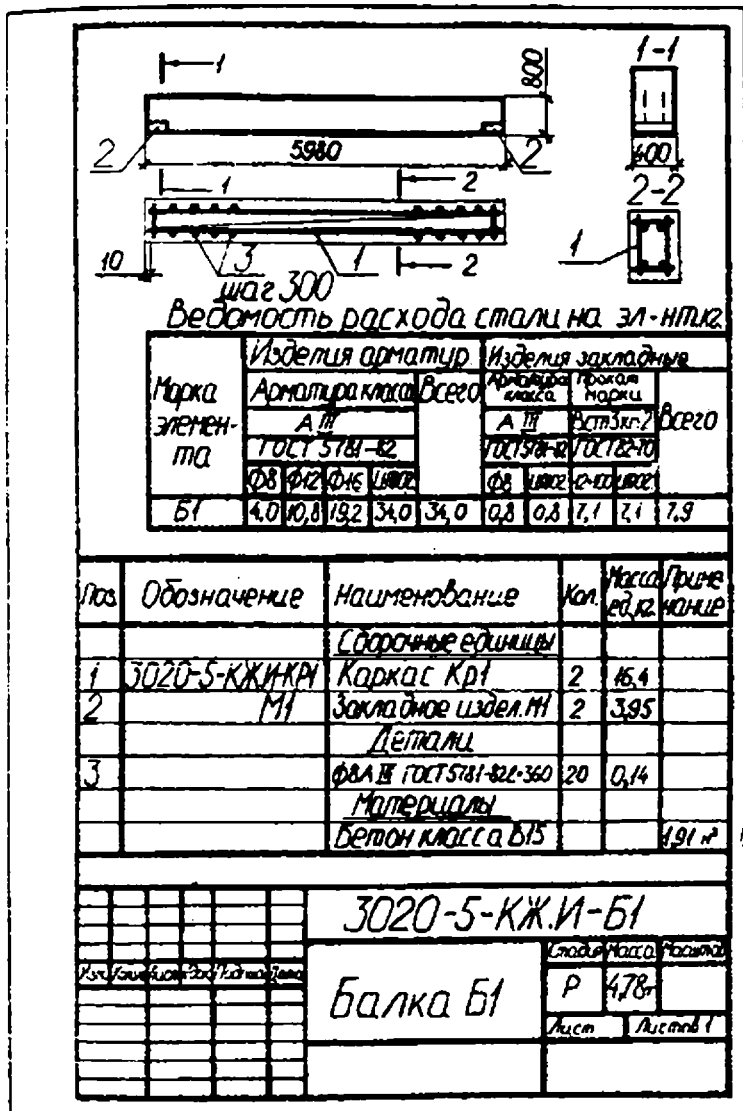 1
1-1
800
2
5980
2
400
1
2
2-2
10
3
1
2
1
шаг 300
Ведомость расхода стали на эл-нт.кг
Марка элемен-та
Изделия арматур.
Изделия закладные
Арматура класса
Всего
Арматура класса
Прокат марки
Всего
А III
А III
ВСт3кп2
ГОСТ 5781-82
ГОСТ 5781-82
ГОСТ 82-70
Ф8 Ф12 Ф16 Итог
Ф8 Итог
Итог
Б1 4,0 10,8 19,2 34,0 34,0 0,8 0,8 7,1 7,1 7,9
Поз Обозначение Наименование Кол. Масса ед,кг Приме-нание
Сборочные единицы
1 3020-5-КЖИ-КР1 Каркас Кр1 2 16,4
2 М1 Закладное издел.М1 2 3,95
Детали
3 Ф8А III ГОСТ5781-82 ℓ-360 20 0,14
Материалы
Бетон класса В15 1,91 м³
3020-5-КЖ.И-Б1
Стадия Масса Масштаб
Балка Б1
Р 4,78т
Лист Листов 1